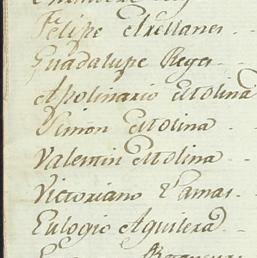 Felipe Arellanes
Guadalupe Reyes
Apolinario Molina
Simon Molina
Valentin Molina
Victoriano Lamas
Eulogio Aguilera